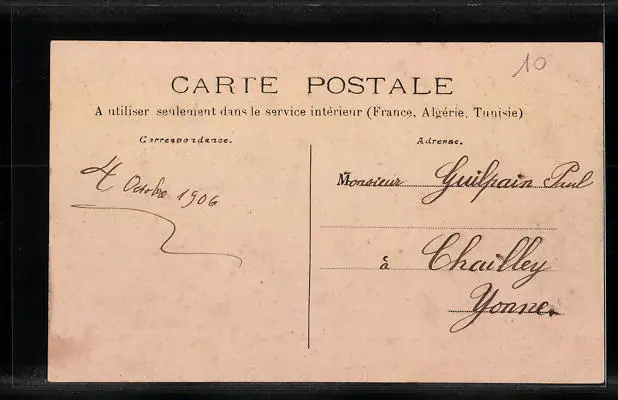 10
CARTE POSTALE
A utiliser seulement dans le service intérieur (France, Algérie, Tunisie)
Correspondance.
Adresse.
4 Octobre 1906
Monsieur Guilpain Paul
à Chailley
Yonne.